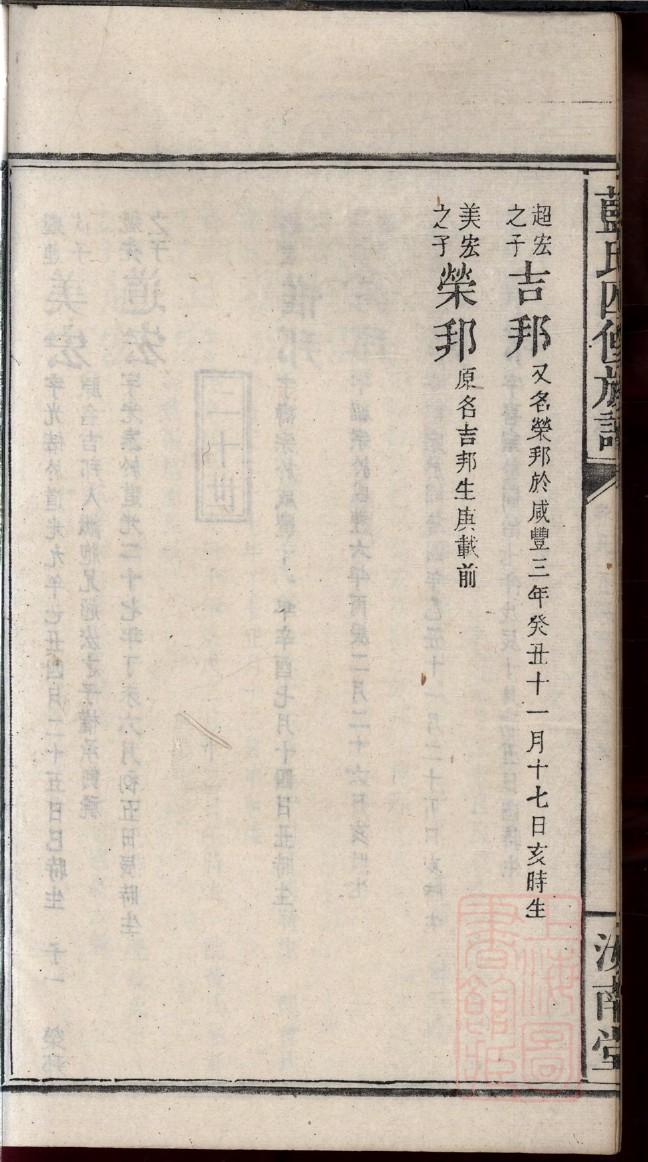 藍氏四修族譜
汝南堂
超宏之子 吉邦 又名榮邦於咸豐三年癸丑十一月十七日亥時生
美宏之子 榮邦 原名吉邦生庚載前
上海圖書館藏